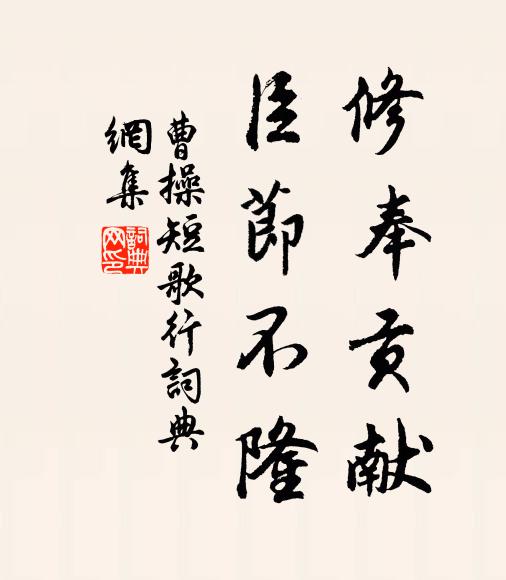 修奉贡献
臣節不隆
曹操短歌行詞典
網集
詞典網印